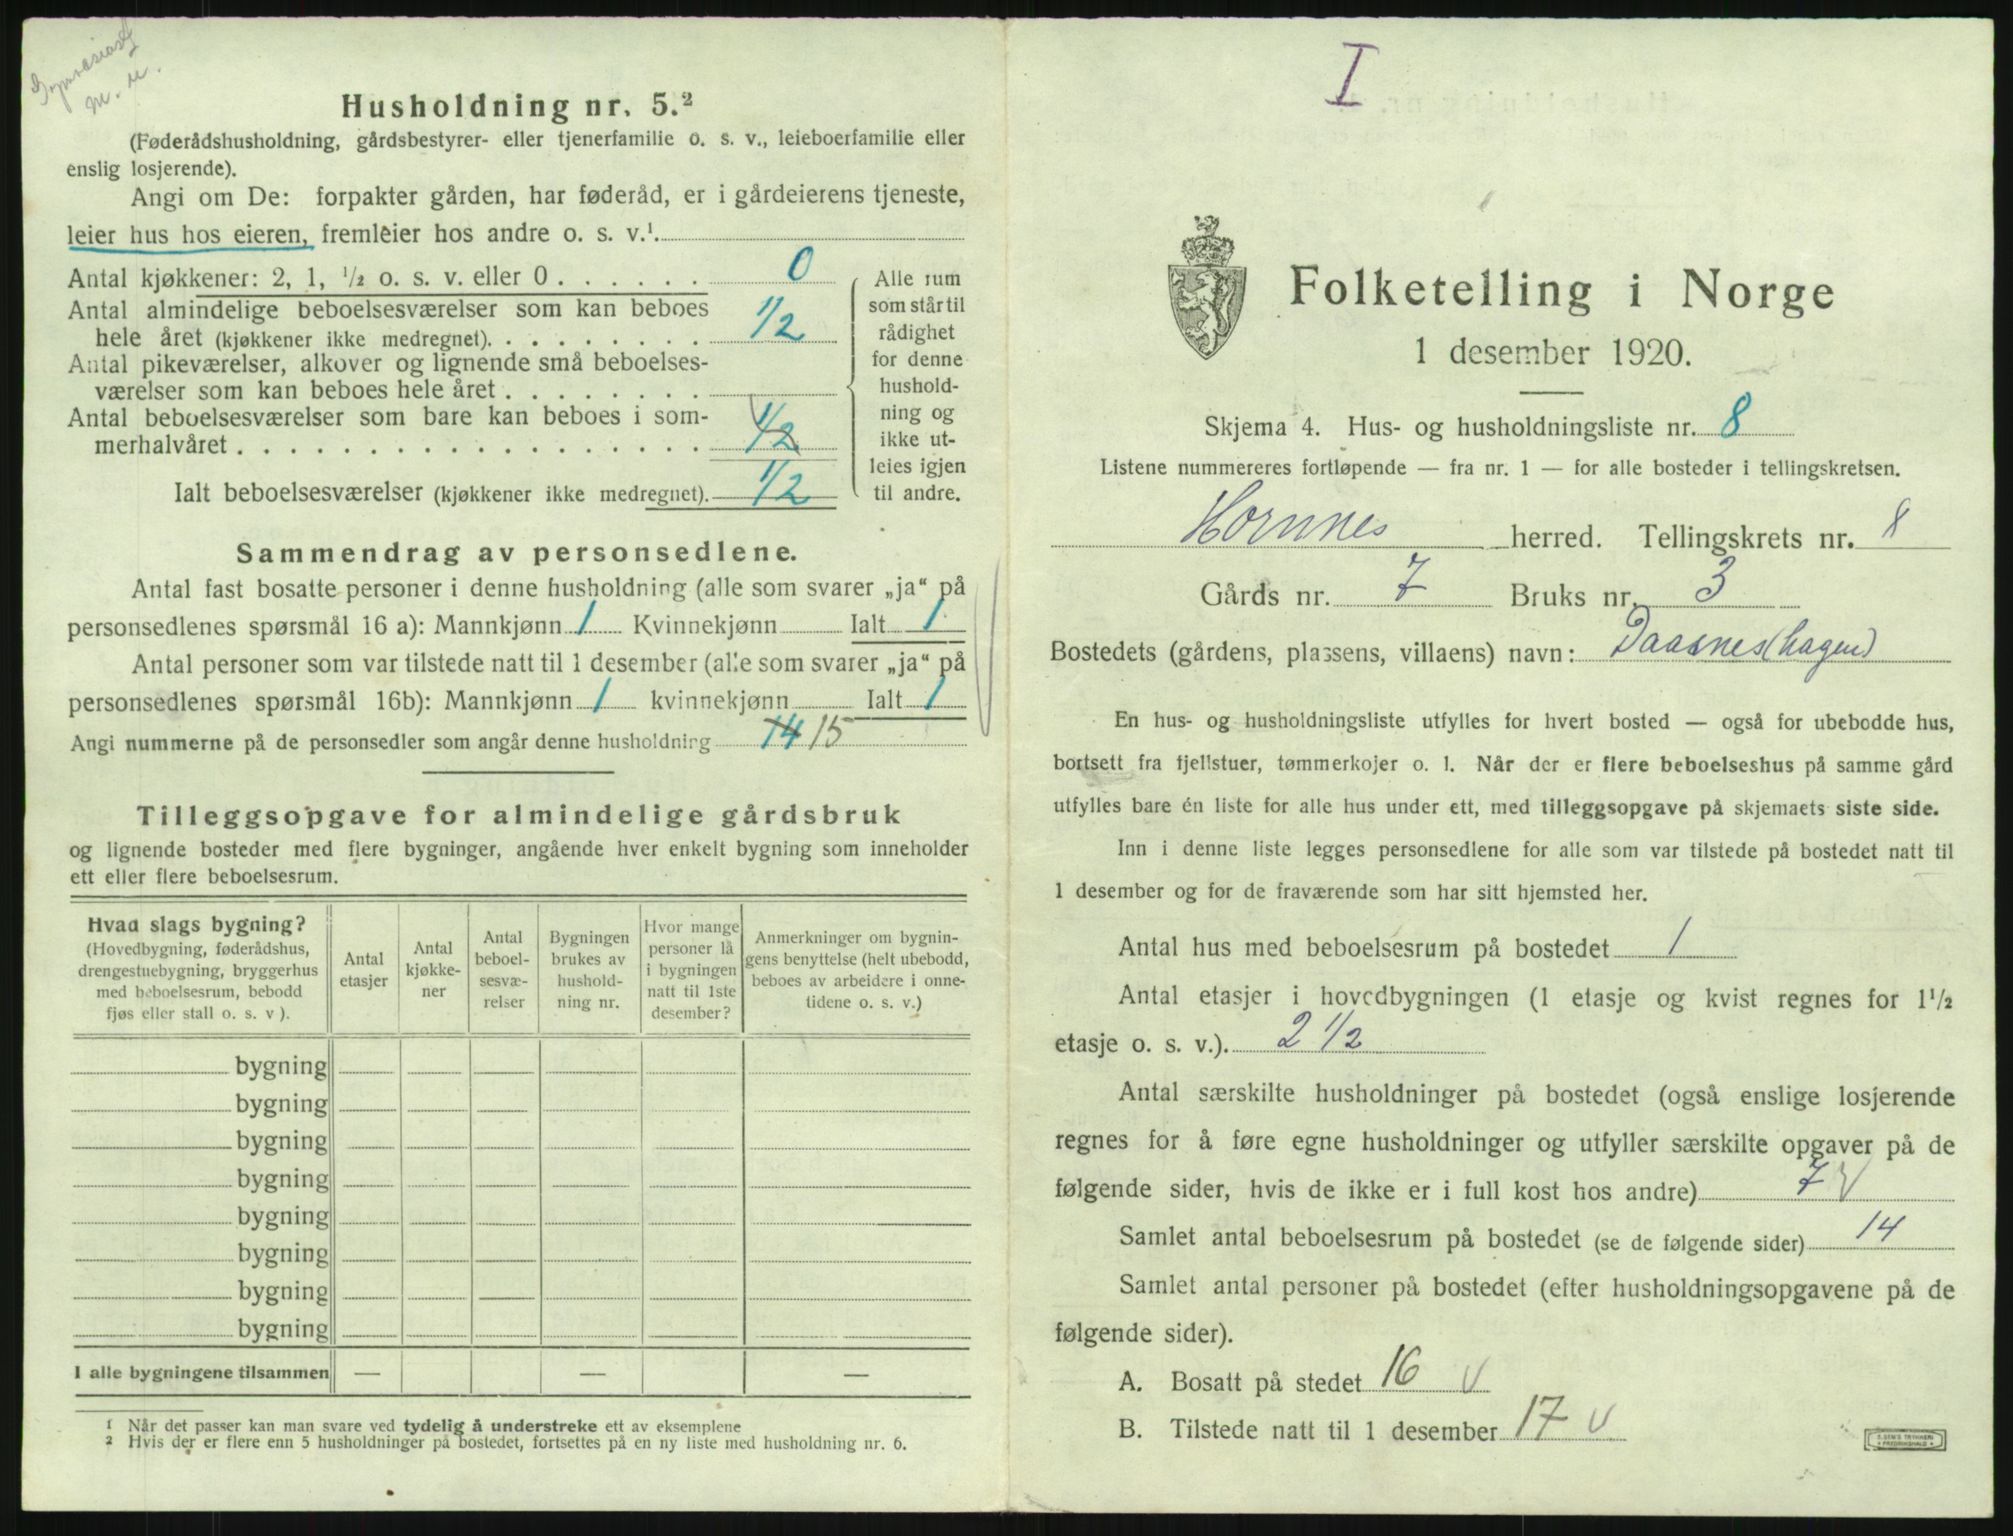 Gymnasiast
m. m.
Husholdning nr. 5.²
(Føderådshusholdning, gårdsbestyrer- eller tjenerfamilie o. s. v., leieboerfamilie eller
enslig losjerende).
Angi om De: forpakter gården, har føderåd, er i gårdeierens tjeneste,
leier hus hos eieren, fremleier hos andre o. s. v.¹.
Antal kjøkkener: 2, 1, ½ o. s. v. eller 0 . . . . . . 0
Antal almindelige beboelsesværelser som kan beboes
hele året (kjøkkener ikke medregnet). . . . . . . . . 1/2
Antal pikeværelser, alkover og lignende små beboelses-
værelser som kan beboes hele året . . . . . . . .
Antal beboelsesværelser som bare kan beboes i som-
merhalvåret . . . . . . . . . . . . . . . . . . 1/2
Ialt beboelsesværelser (kjøkkener ikke medregnet). 1/2
Alle rum
som står til
rådighet
for denne
hushold-
ning og
ikke ut-
leies igjen
til andre.
Sammendrag av personsedlene.
Antal fast bosatte personer i denne husholdning (alle som svarer „ja“ på
personsedlenes spørsmål 16 a): Mannkjønn 1 Kvinnekjønn Ialt 1
Antal personer som var tilstede natt til 1 desember (alle som svarer „ja“ på
personsedlenes spørsmål 16b): Mannkjønn 1 kvinnekjønn Ialt 1
Angi nummerne på de personsedler som angår denne husholdning 14 15
Tilleggsopgave for almindelige gårdsbruk
og lignende bosteder med flere bygninger, angående hver enkelt bygning som inneholder
ett eller flere beboelsesrum.
Hvad slags bygning?
(Hovedbygning, føderådshus,
drengestuebygning, bryggerhus
med beboelsesrum, bebodd
fjøs eller stall o. s. v ).
Antal
etasjer
Antal
kjøkke-
ner
Antal
beboel-
sesvæ-
relser
Bygningen
brukes av
hushold-
ning nr.
Hvor mange
personer lå
i bygningen
natt til 1ste
desember?
Anmerkninger om bygnin-
gens benyttelse (helt ubebodd,
beboes av arbeidere i onne-
tidene o. s. v.)
bygning
bygning
bygning
bygning
bygning
bygning
bygning
bygning
I alle bygningene tilsammen — — —
1 Når det passer kan man svare ved tydelig å understreke ett av eksemplene
2 Hvis der er flere enn 5 husholdninger på bostedet, fortsettes på en ny liste med husholdning nr. 6.
I
Folketelling i Norge
1 desember 1920.
Skjema 4. Hus- og husholdningsliste nr. 8
Listene nummereres fortløpende — fra nr. 1 — for alle bosteder i tellingskretsen.
Hornnes herred. Tellingskrets nr. 8
Gårds nr. 7 Bruks nr. 3
Bostedets (gårdens, plassens, villaens) navn: Daasnes (hagen)
En hus- og husholdningsliste utfylles for hvert bosted — også for ubebodde hus,
bortsett fra fjellstuer, tømmerkojer o. l. Når der er flere beboelseshus på samme gård
utfylles bare én liste for alle hus under ett, med tilleggsopgave på skjemaets siste side.
Inn i denne liste legges personsedlene for alle som var tilstede på bostedet natt til
1 desember og for de fraværende som har sitt hjemsted her.
Antal hus med beboelsesrum på bostedet 1
Antal etasjer i hovedbygningen (1 etasje og kvist regnes for 1½
etasje o. s. v.). 2 1/2
Antal særskilte husholdninger på bostedet (også enslige losjerende
regnes for å føre egne husholdninger og utfyller særskilte opgaver på de
følgende sider, hvis de ikke er i full kost hos andre) 7 v
Samlet antal beboelsesrum på bostedet (se de følgende sider) 14
Samlet antal personer på bostedet (efter husholdningsopgavene på de
følgende sider).
A. Bosatt på stedet 16 v
B. Tilstede natt til 1 desember 17 v